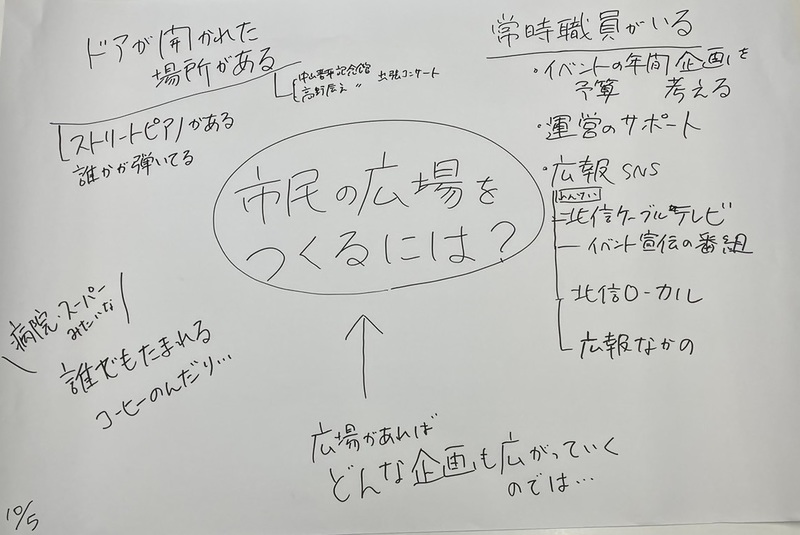 ドアが開かれた
場所がある
中山晋平記念館
高野辰之 〃 出張コンサート
ストリートピアノがある
誰かが弾いてる
常時職員がいる
・イベントの年間企画を
予算 考える
・運営のサポート
・広報 SNS
れんけい
北信ケーブルテレビ
イベント宣伝の番組
北信ローカル
広報なかの
市民の広場を
つくるには?
病院・スーパー
みたいな
誰でもたまれる
コーヒーのんだり…
広場があれば
どんな企画も広がっていく
のでは…
10/5